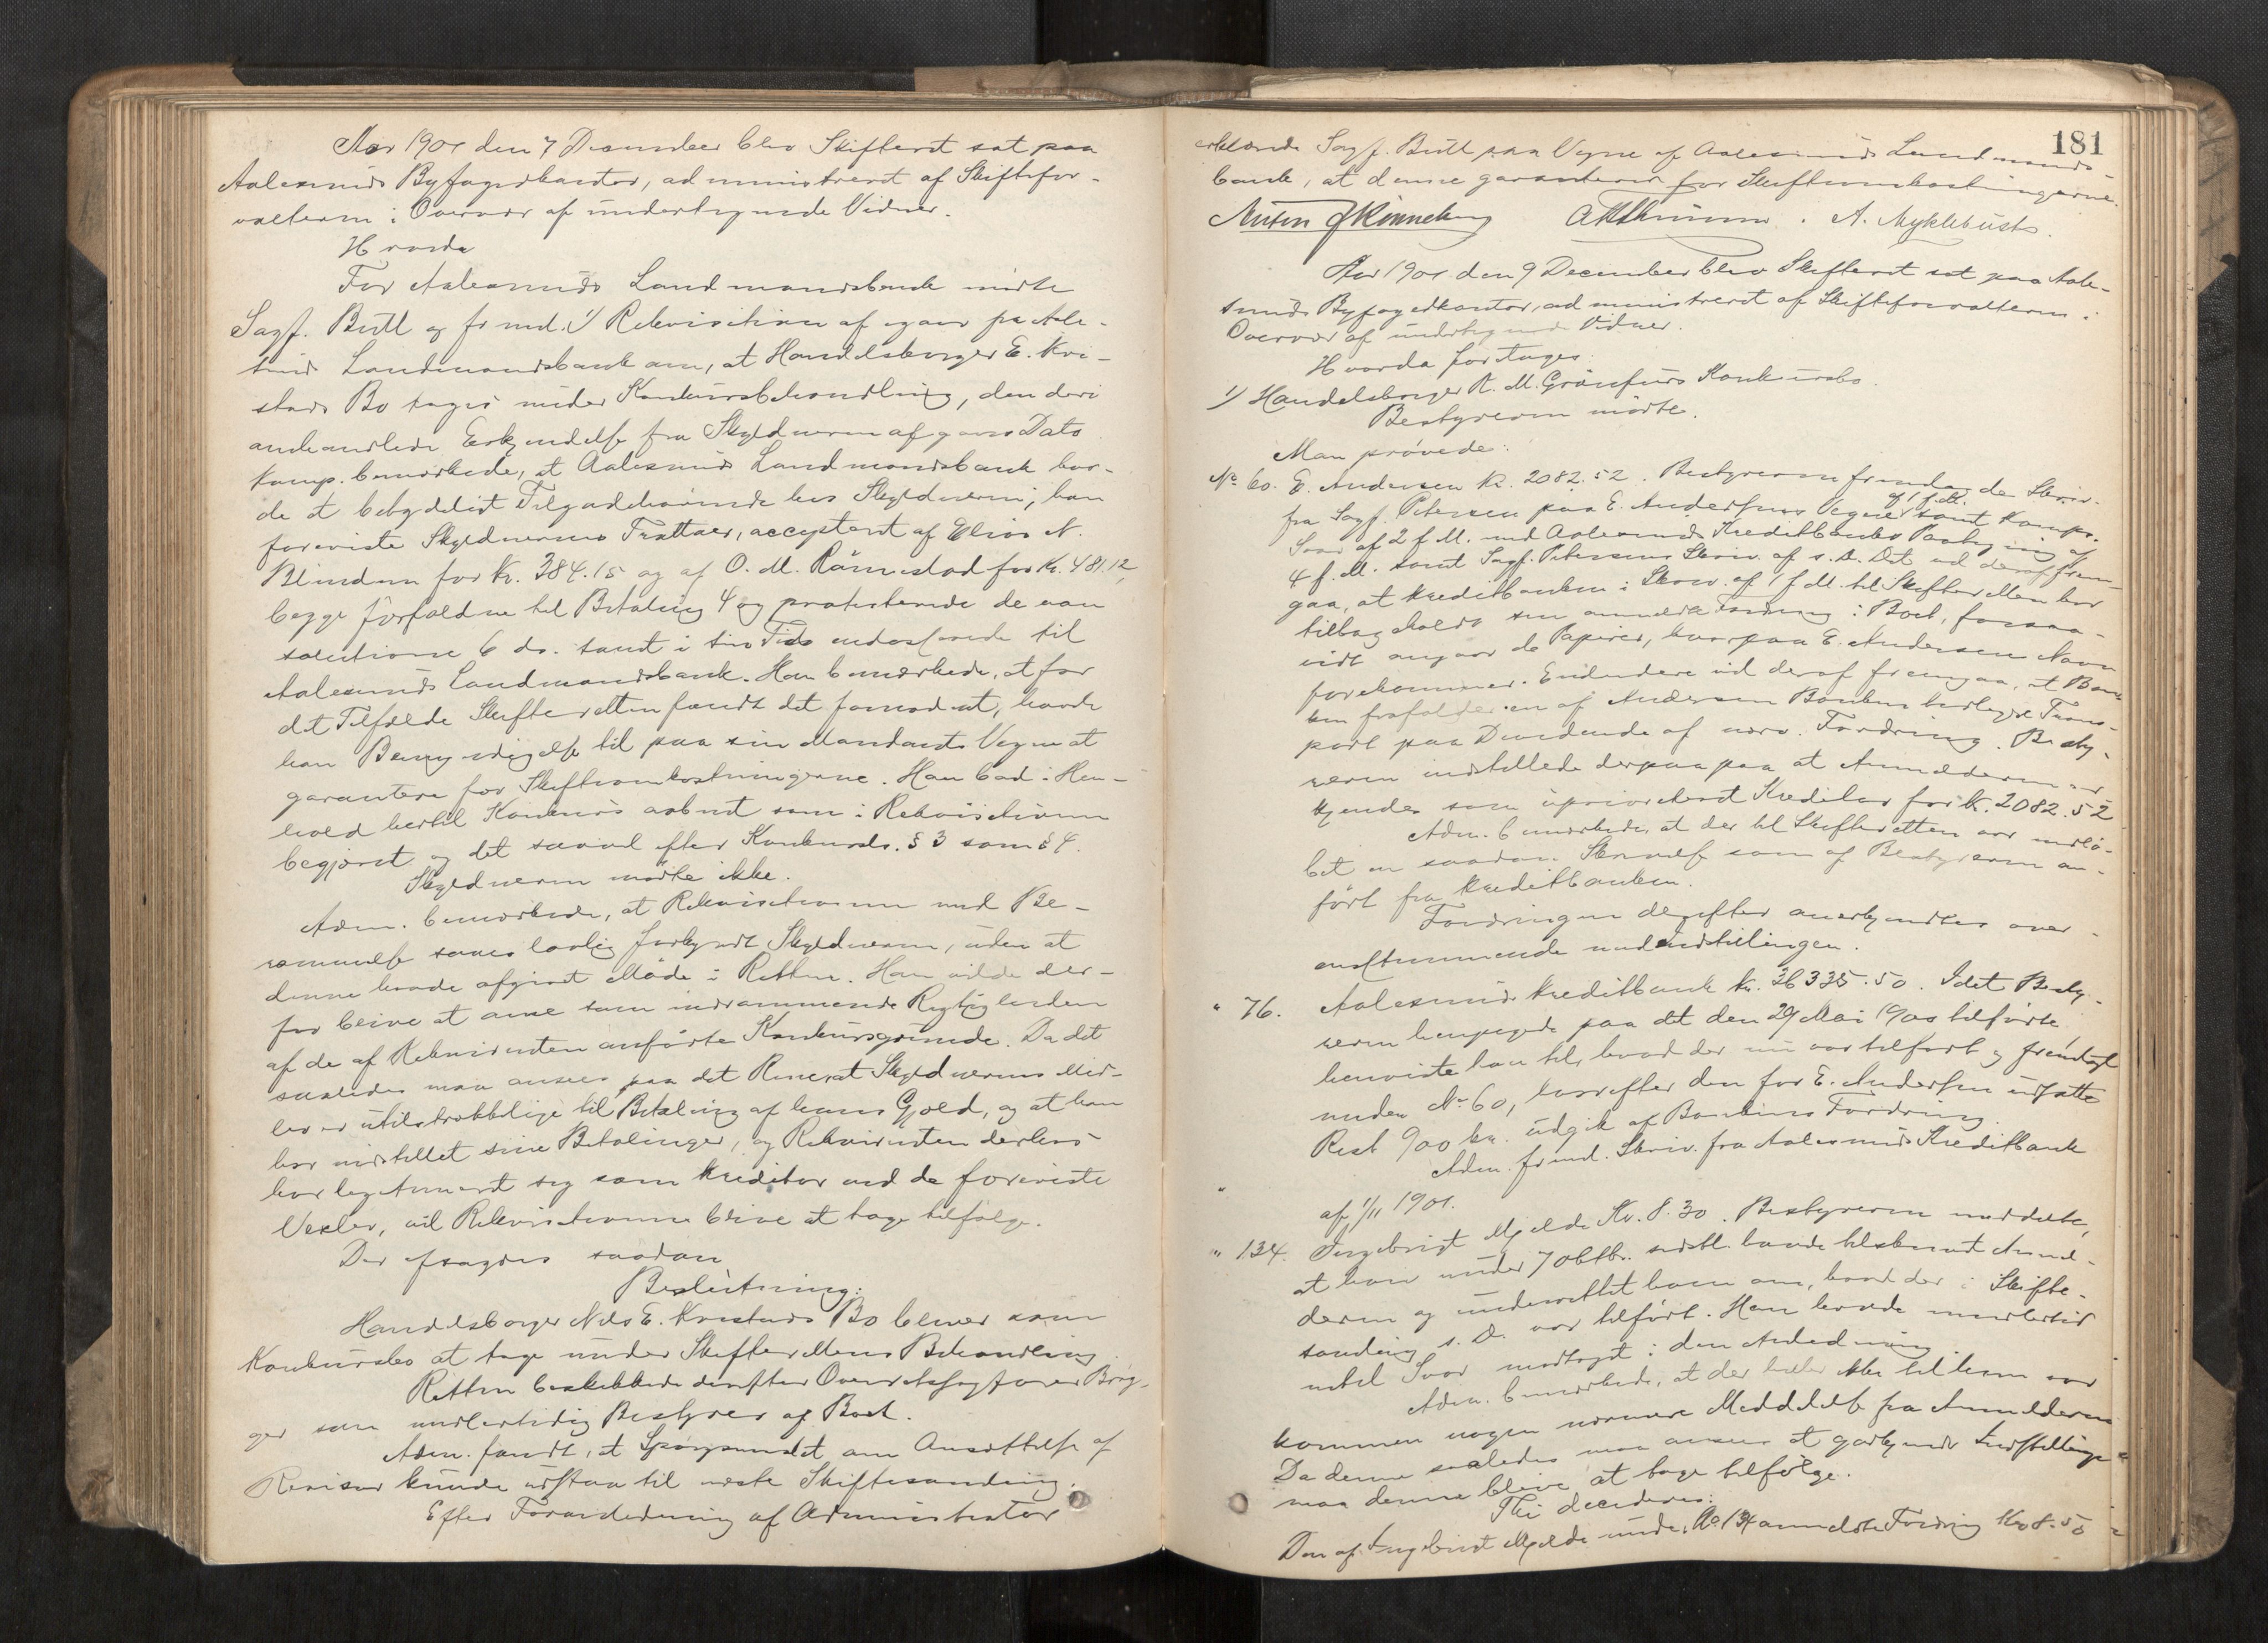 Aar 1901 den 7 December blev Skifteret sat paa
Aalesunds Byfogedkontor, administreret af Skiftefor-
valteren i Overvær af undertegnede Vidner.
Hvorda
For Aalesunds Landmandsbank mødte
Sagf. Bull og freml. 1) Rekvisition af igaar fra Aale-
sunds Landmandsbank om, at Handelsborger E. Kvi-
stads Bo tages under Konkursbehandling, den deri
omhandlede Erkjendelse fra Skyldneren af gaars Dato
Komp. bemærkede, at Aalesunds Landmandsbank hav-
de et betydeligt Tilgodehavende hos Skyldneren; han
foreviste Skyldnerens Tratter, accepteret af Elias N.
Blindem for Kr. 384.15 og af O. M. Rämestad for Kr. 481.12,
begge forfaldne til Betaling 4 og protesterede de non
solutione 6 ds. samt i sin Tid endosserede til
Aalesunds Landmandsbank. Han bemærkede, at for
det Tilfælde Skifteretten fandt det fornødent, havde
han Bemyndigelse til paa sin Mandants Vegne at
garantere for Skifteomkostningerne. Han bad i Hen-
hold hertil Konkurs aabnet som i Rekvisitionen
begjæret og det saavel efter Konkursl. § 3 som § 4.
Skyldneren mødte ikke.
Adm. bemærkede, at Rekvisitionen med Be-
rammelse saaes lovlig forkyndt Skyldneren, uden at
denne havde afgivet Møde i Retten. Han vilde der-
for blive at anse som indrømmende Rigtigheden
af de af Rekvirenten anførte Konkursgrunde. Da det
saaledes maa ansees paa det Rene, at Skyldnerens Mid-
ler er utilstrækkelige til Betaling af hans Gjæld, og at han
har indstillet sine Betalinger, og Rekvirenten derhos
har legitimeret sig som Kreditor ved de foreviste
Vexler, vil Rekvisitionen blive at tage tilfølge.
Der afsagdes saadan
Beslutning:
Handelsborger Nils E. Kvistads Bo bliver som
Konkursbo at tage under Skifterettens Behandling.
Retten beskikkede derefter Overretssagfører Brøg-
ger som midlertidig Bestyrer af Boet.
Adm. fandt, at Spørgsmaalet om Ansættelse af
Revisor kunde udstaa til næste Skiftesamling.
Efter Foranledning af Administrator
181
erklærede Sagf. Bull paa Vegne af Aalesunds Landmands-
bank, at denne garanterer for Skifteomkostningerne.
A. Myklebust.
Aar 1901 den 9 December blev Skifteret sat paa Aale-
sunds Byfogedkontor, administreret af Skifteforvalteren i
Overvær af undertegnede Vidner.
Hvorda foretages:
1) Handelsborger K. M. Grönfurs Konkursbo.
Bestyreren mødte.
Man prøvede:
No 60. E. Andersen Kr. 2082.52. Bestyreren fremlagde Skriv.
fra Sagf. Petersen paa E. Andersens Vegne af 1 f. M. samt Komps.
Svar af 2 f. M. med Aalesunds Kreditbanks Paategning af
4 f. M. samt Sagf. Petersens Skriv. af s. D. Det vil deraf frem-
gaa, at Kreditbanken i Skriv. af 1 f. M. til Skifteretten har
tilbagekaldt sin anmeldte Fordring i Boet, forsaa-
vidt angaar de Papirer, hvorpaa E. Andersens Navn
forekommer. Endvidere vil deraf fremgaa, at Ban-
ken frafalder en af Andersen Banken meddelt Trans-
port paa Dividende af nærv. Fordring. Besty-
reren indstillede derpaa paa at Anmelderen er-
kjendes som uprioriteret Kreditor for Kr. 2082.52
Adm. bemærkede, at der til Skifteretten var indlø-
bet en saadan Skrivelse som af Bestyreren an-
ført fra Kreditbanken.
Fordringen derefter anerkjendtes over-
ensstemmende med Indstillingen.
" 76. Aalesunds Kreditbank Kr. 36335.50. Idet Besty-
reren henpegede paa det den 29 Mai 1900 tilførte,
henviste han til, hvad der nu var tilført og fremlagt
under No 60, hvorefter den for E. Andersen udsatte
Rest 900 kr. udgik af Bankens Fordring.
Adm. freml. Skriv. fra Aalesunds Kreditbank
af 1/11 1901.
" 134. Ingebrigt Mjelde Kr. 8.30. Bestyreren meddelte,
at han under 7 oktbr. sidstl. havde tilskrevet Anmel-
deren og underrettet ham om, hvad der i Skifte-
samling s. D. var tilført. Han havde imidlertid
intet Svar modtaget i den Anledning.
Adm. bemærkede, at der heller ikke til ham var
kommen nogen nærmere Meddelelse fra Anmelderen
Da denne saaledes maa ansees at godkjende Indstillingen
maa denne blive at tage tilfølge.
Thi decideres:
Den af Ingebrigt Mjelde under No 134 anmeldte Fordring Kr. 8.50